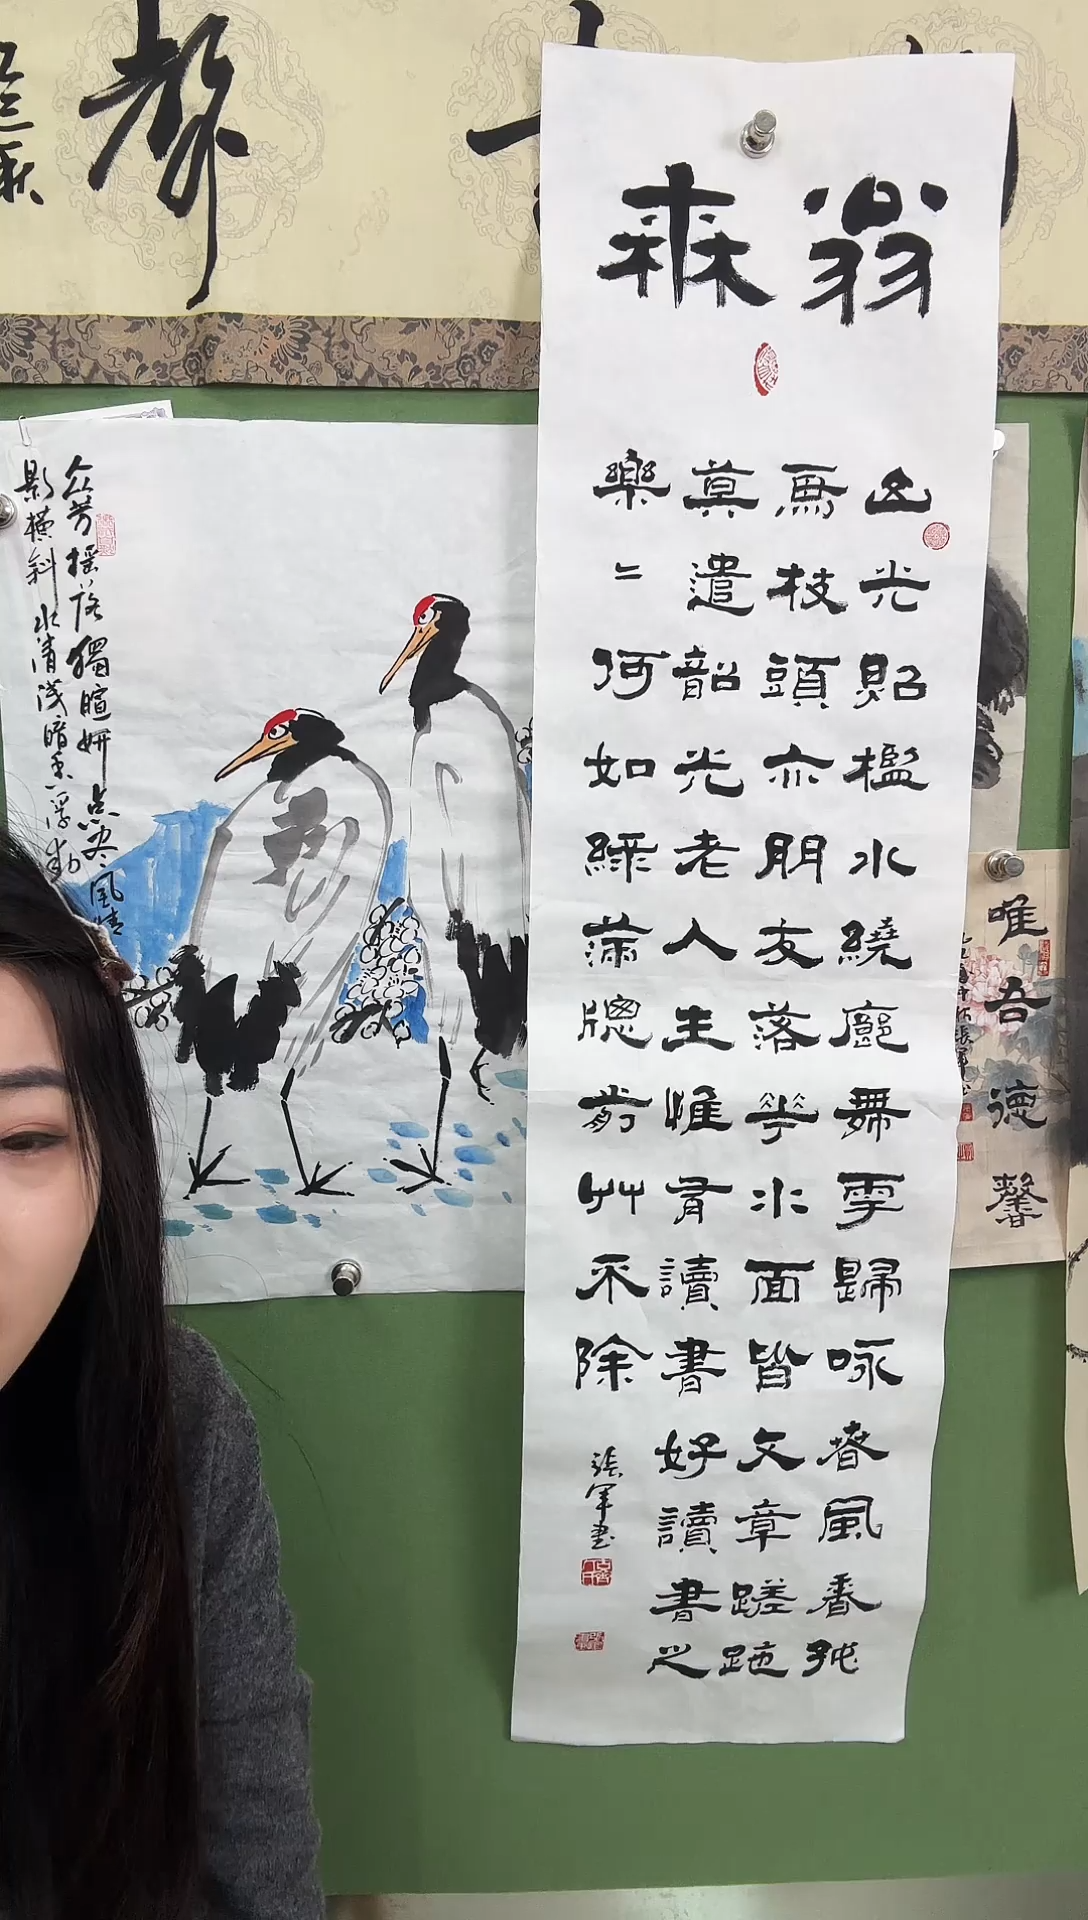 翁森
山光照檻水繞廊舞雩歸咏春風香好
鳥枝頭亦朋友落花水面皆文章蹉跎
莫遣韶光老人生惟有讀書好讀書之
樂〻何如綠滿牕前艸不除
張軍書
众芳摇落獨暄妍占尽風情
影横斜水清浅暗香浮動
唯吾德馨